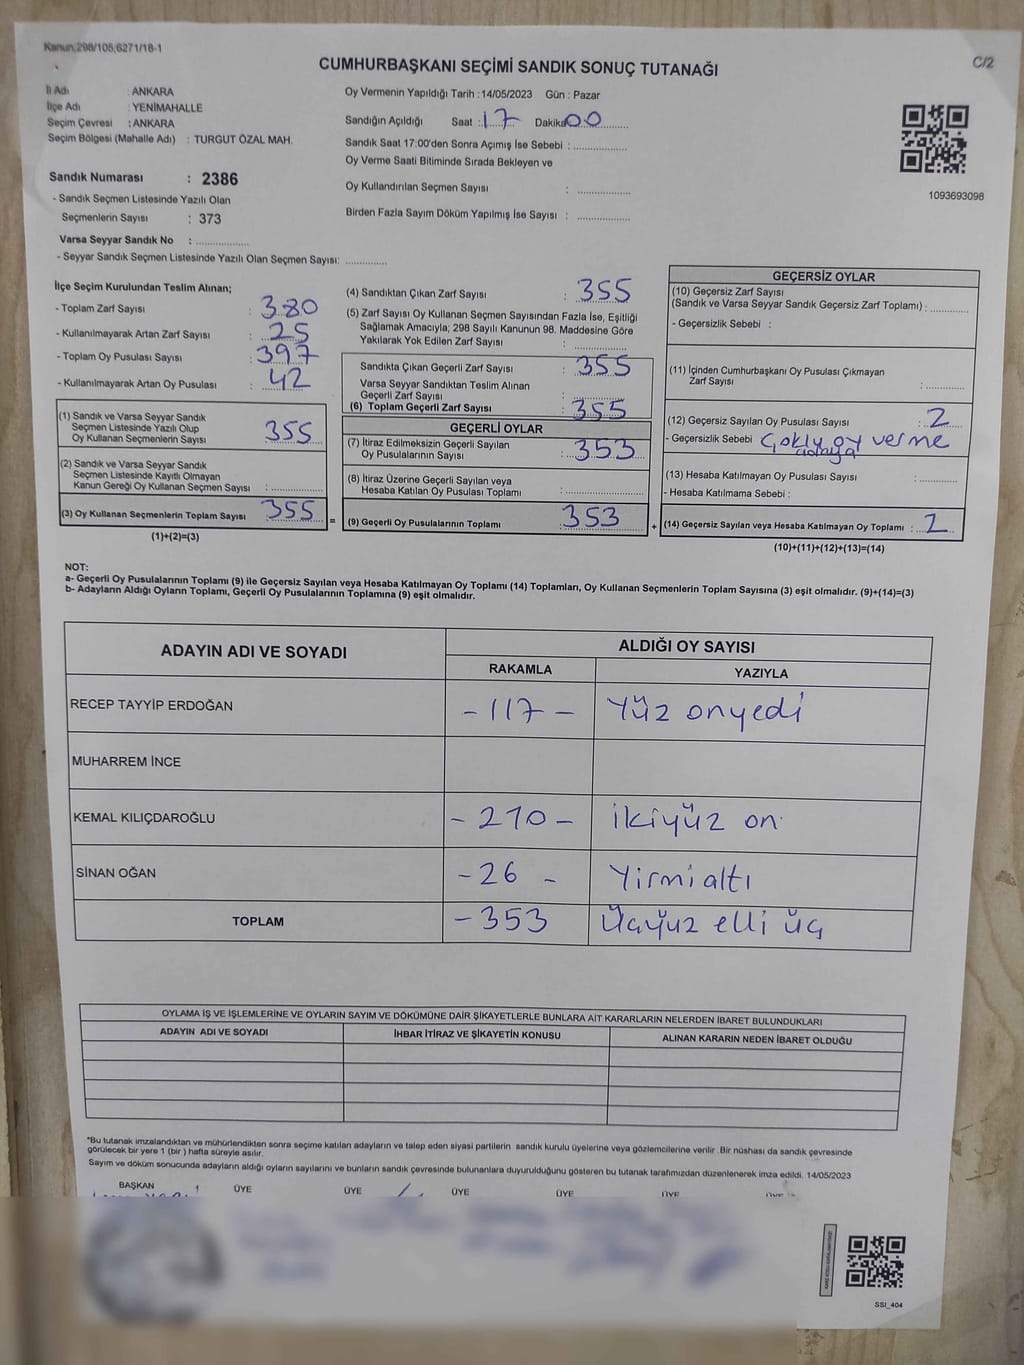 Kanun;298/105;6271/18-1
C/2
CUMHURBAŞKANI SEÇİMİ SANDIK SONUÇ TUTANAĞI
İl Adı : ANKARA
İlçe Adı : YENİMAHALLE
Seçim Çevresi : ANKARA
Seçim Bölgesi (Mahalle Adı) : TURGUT ÖZAL MAH.
Sandık Numarası : 2386
- Sandık Seçmen Listesinde Yazılı Olan
Seçmenlerin Sayısı : 373
Varsa Seyyar Sandık No : ..............
- Seyyar Sandık Seçmen Listesinde Yazılı Olan Seçmen Sayısı: ............
Oy Vermenin Yapıldığı Tarih :14/05/2023 Gün : Pazar
Sandığın Açıldığı Saat : 17 Dakika 00
Sandık Saat 17:00'den Sonra Açımış İse Sebebi : ..............
Oy Verme Saati Bitiminde Sırada Bekleyen ve
Oy Kullandırılan Seçmen Sayısı : ..............
Birden Fazla Sayım Döküm Yapılmış İse Sayısı : ..............
1093693098
İlçe Seçim Kurulundan Teslim Alınan;
- Toplam Zarf Sayısı : 380
- Kullanılmayarak Artan Zarf Sayısı : 25
- Toplam Oy Pusulası Sayısı : 397
- Kullanılmayarak Artan Oy Pusulası : 42
(1) Sandık ve Varsa Seyyar Sandık
Seçmen Listesinde Yazılı Olup
Oy Kullanan Seçmenlerin Sayısı 355
(2) Sandık ve Varsa Seyyar Sandık
Seçmen Listesinde Kayıtlı Olmayan
Kanun Gereği Oy Kullanan Seçmen Sayısı : ..............
(3) Oy Kullanan Seçmenlerin Toplam Sayısı 355 =
(1)+(2)=(3)
(4) Sandıktan Çıkan Zarf Sayısı : 355
(5) Zarf Sayısı Oy Kullanan Seçmen Sayısından Fazla İse, Eşitliği
Sağlamak Amacıyla; 298 Sayılı Kanunun 98. Maddesine Göre
Yakılarak Yok Edilen Zarf Sayısı : ..............
Sandıkta Çıkan Geçerli Zarf Sayısı : 355
Varsa Seyyar Sandıktan Teslim Alınan
Geçerli Zarf Sayısı : ..............
(6) Toplam Geçerli Zarf Sayısı : 355
GEÇERLİ OYLAR
(7) İtiraz Edilmeksizin Geçerli Sayılan
Oy Pusulalarının Sayısı : 353
(8) İtiraz Üzerine Geçerli Sayılan veya
Hesaba Katılan Oy Pusulası Toplamı : ..............
(9) Geçerli Oy Pusulalarının Toplamı 353 +
GEÇERSİZ OYLAR
(10) Geçersiz Zarf Sayısı
(Sandık ve Varsa Seyyar Sandık Geçersiz Zarf Toplamı) : ............
- Geçersizlik Sebebi :
(11) İçinden Cumhurbaşkanı Oy Pusulası Çıkmayan
Zarf Sayısı : ............
(12) Geçersiz Sayılan Oy Pusulası Sayısı : 2
- Geçersizlik Sebebi Çoklu oy verme
adaya
(13) Hesaba Katılmayan Oy Pusulası Sayısı : ............
- Hesaba Katılmama Sebebi :
(14) Geçersiz Sayılan veya Hesaba Katılmayan Oy Toplamı : 2
(10)+(11)+(12)+(13)=(14)
NOT:
a- Geçerli Oy Pusulalarının Toplamı (9) ile Geçersiz Sayılan veya Hesaba Katılmayan Oy Toplamı (14) Toplamları, Oy Kullanan Seçmenlerin Toplam Sayısına (3) eşit olmalıdır. (9)+(14)=(3)
b- Adayların Aldığı Oyların Toplamı, Geçerli Oy Pusulalarının Toplamına (9) eşit olmalıdır.
ADAYIN ADI VE SOYADI
ALDIĞI OY SAYISI
RAKAMLA YAZIYLA
RECEP TAYYİP ERDOĞAN - 117 - Yüz onyedi
MUHARREM İNCE
KEMAL KILIÇDAROĞLU - 210 - İkiyüz on
SİNAN OĞAN - 26 - Yirmialtı
TOPLAM - 353 Üçyüz elli üç
OYLAMA İŞ VE İŞLEMLERİNE VE OYLARIN SAYIM VE DÖKÜMÜNE DAİR ŞİKAYETLERLE BUNLARA AİT KARARLARIN NELERDEN İBARET BULUNDUKLARI
ADAYIN ADI VE SOYADI İHBAR İTİRAZ VE ŞİKAYETİN KONUSU ALINAN KARARIN NEDEN İBARET OLDUĞU
*Bu tutanak imzalandıktan ve mühürlendikten sonra seçime katılan adayların ve talep eden siyasi partilerin sandık kurulu üyelerine veya gözlemcilerine verilir. Bir nüshası da sandık çevresinde
görülecek bir yere 1 (bir) hafta süreyle asılır.
Sayım ve döküm sonucunda adayların aldığı oyların sayılarını ve bunların sandık çevresinde bulunanlara duyurulduğunu gösteren bu tutanak tarafımızdan düzenlenerek imza edildi. 14/05/2023
BAŞKAN ÜYE ÜYE ÜYE ÜYE ÜYE ÜYE
SSI_404